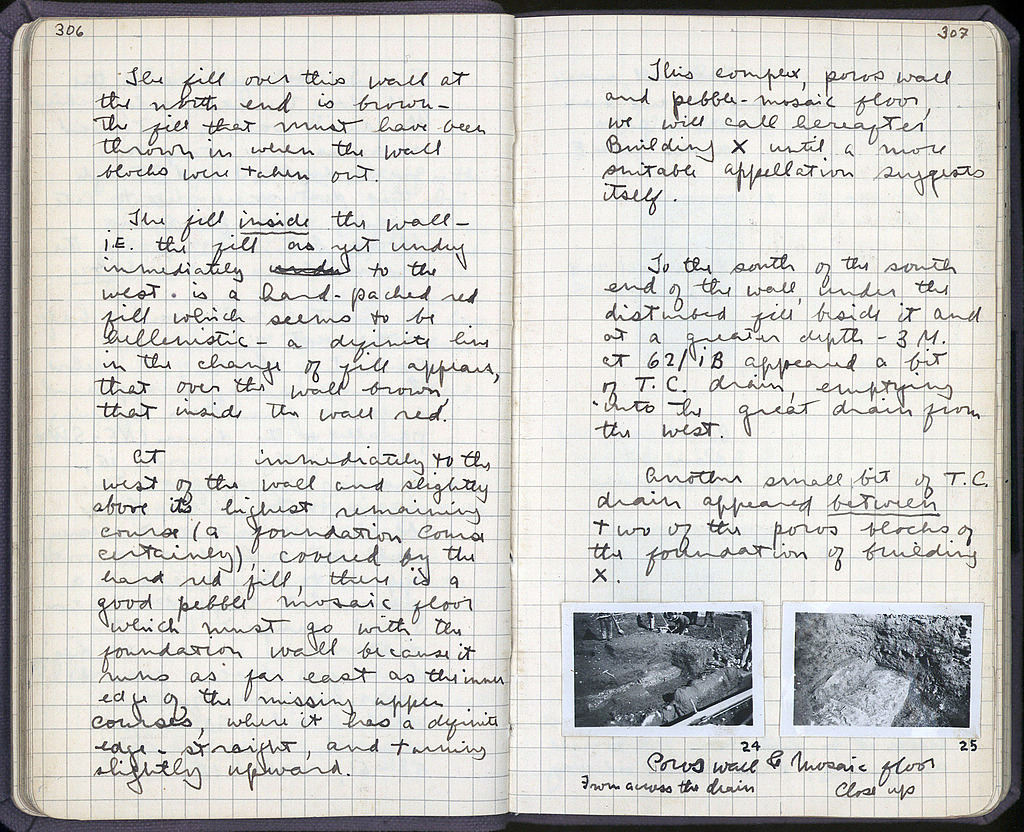 306
The fill over this wall at
the north end is brown –
the fill that must have been
thrown in when the wall
blocks were taken out.
The fill inside the wall –
i.E. the fill as yet undug
immediately to the
west . is a hard-packed red
fill which seems to be
hellenistic – a definite line
in the change of fill appears,
that over the wall brown,
that inside the wall red.
At immediately to the
west of the wall and slightly
above its highest remaining
course (a foundation course
certainly), covered by the
hard red fill, there is a
good pebble mosaic floor
which must go with the
foundation wall because it
runs as far east as the inner
edge of the missing upper
courses, where it has a definite
edge – straight, and turning
slightly upward.
307
This complex, poros wall
and pebble-mosaic floor,
we will call hereafter
Building X until a more
suitable appellation suggests
itself.
To the south of the south
end of the wall, under the
disturbed fill beside it and
at a greater depth – 3 M.
at 62/IB appeared a bit
of T.C. drain emptying
into the great drain from
the west.
Another small bit of T.C.
drain appeared between
two of the poros blocks of
the foundation of building
X.
24
25
Poros wall & Mosaic floor
From across the drain
Close up